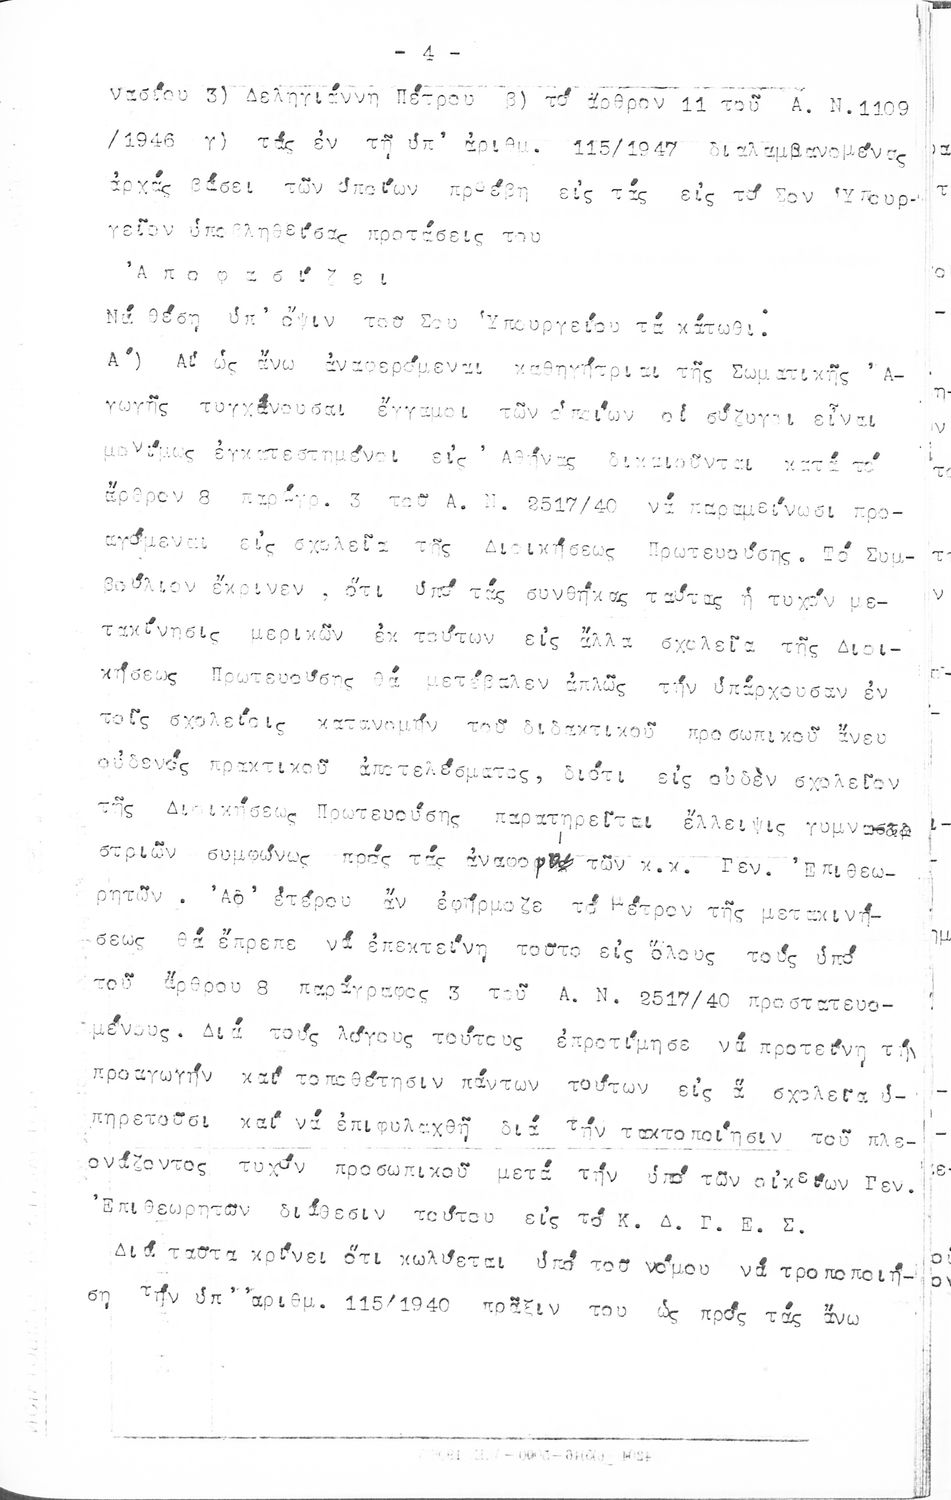 - 4 -
νασίου 3) Δεληγιάννη Πέτρου β) τό ἄρθρον 11 τοῦ Α. Ν.1109
/1946 γ) τάς ἐν τῇ ὑπ' ἀριθμ. 115/1947 διαλαμβανομένας
ἀρχάς βάσει τῶν ὁποίων προέβη εἰς τάς εἰς τό Σον Ὑπουρ-
γεῖον ὑποβληθείσας προτάσεις του
'Α π ο φ α σ ί ζ ε ι
Νά θέση ὑπ' ὄψιν του Σου Ὑπουργείου τά κάτωθι:
Α') Αἱ ὡς ἄνω ἀναφερόμεναι καθηγήτριαι τῆς Σωματικῆς 'Α-
γωγῆς τυγχάνουσαι ἔγγαμοι τῶν ὁποίων οἱ σύζυγοι εἶναι
μονίμως ἐγκατεστημένοι εἰς 'Αθήνας δικαιοῦνται κατά τό
ἄρθρον 8 παράγρ. 3 τοῦ Α. Ν. 2517/40 νά παραμείνωσι προ-
αγόμεναι εἰς σχολεῖα τῆς Διοικήσεως Πρωτευούσης. Τό Συμ-
βούλιον ἔκρινεν , ὅτι ὑπό τάς συνθήκας ταύτας ἡ τυχόν με-
τακίνησις μερικῶν ἐκ τούτων εἰς ἄλλα σχολεῖα τῆς Διοι-
κήσεως Πρωτευούσης θά μετέβαλεν ἁπλῶς τήν ὑπάρχουσαν ἐν
τοῖς σχολείοις κατανομήν τοῦ διδακτικοῦ προσωπικοῦ ἄνευ
οὐδενός πρακτικοῦ ἀποτελέσματος, διότι εἰς οὐδὲν σχολεῖον
τῆς Διοικήσεως Πρωτευούσης παρατηρεῖται ἔλλειψις γυμνα
στριῶν συμφώνως πρός τάς ἀναφοράς τῶν κ.κ. Γεν. 'Επιθεω-
ρητῶν . 'Αφ' ἑτέρου ἄν ἐφήρμοζε τό μέτρον τῆς μετακινή-
σεως θά ἔπρεπε νά ἐπεκτείνη τοῦτο εἰς ὅλους τούς ὑπό
τοῦ ἄρθρου 8 παράγραφος 3 τοῦ Α. Ν. 2517/40 προστατευο-
μένους. Διά τούς λόγους τούτους ἐπροτίμησε νά προτείνη τήν
προαγωγήν καί τοποθέτησιν πάντων τούτων εἰς ἅ σχολεῖα ὑ-
πηρετοῦσι καί νά ἐπιφυλαχθῆ διά τήν τακτοποίησιν τοῦ πλε-
ονάζοντος τυχόν προσωπικοῦ μετά τήν ὑπό τῶν οἰκείων Γεν.
'Επιθεωρητῶν διάθεσιν τούτου εἰς τό Κ. Δ. Γ. Ε. Σ.
Διά ταῦτα κρίνει ὅτι κωλύεται ὑπό τοῦ νόμου νά τροποποιή-
ση τήν ὑπ' 'ἀριθμ. 115/1940 πρᾶξιν του ὡς πρός τάς ἄνω